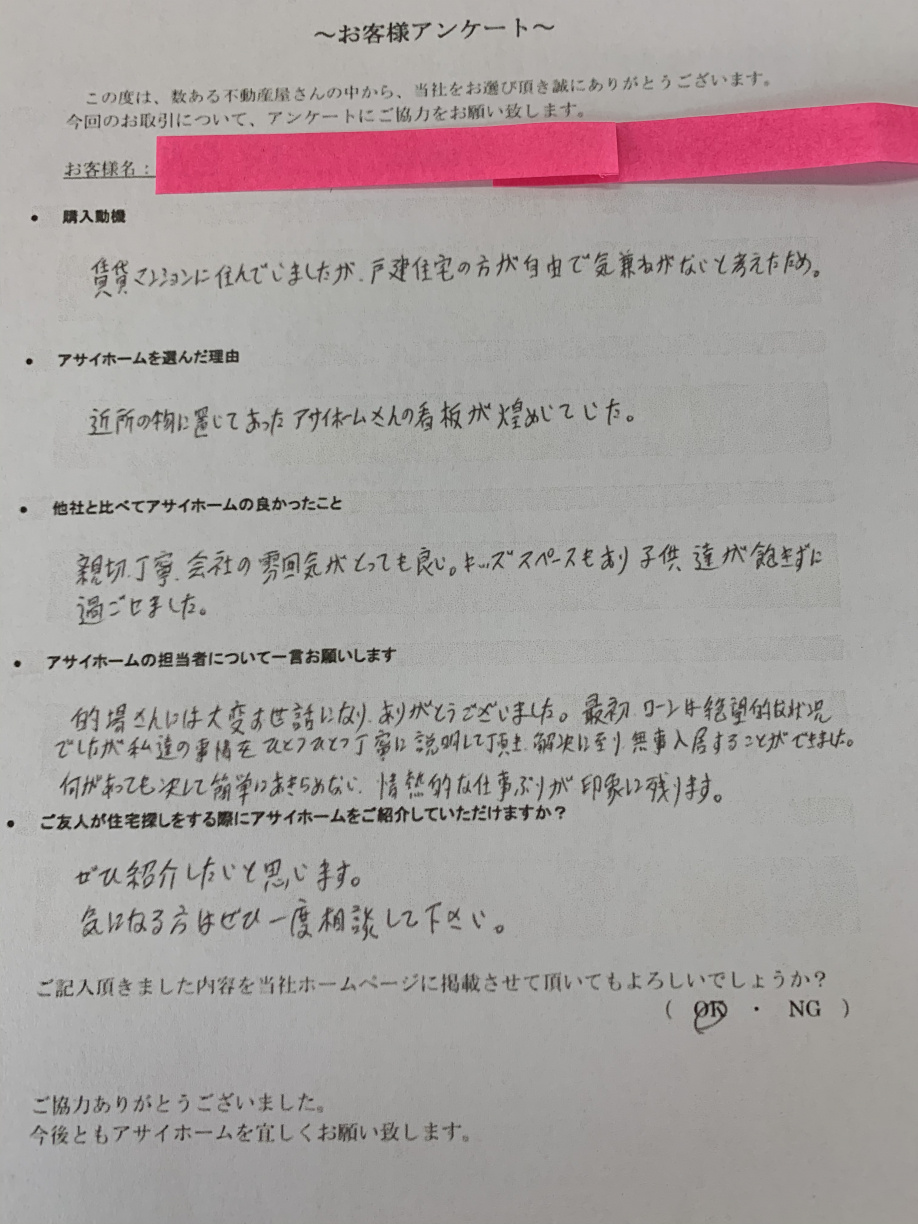 ～お客様アンケート～
この度は、数ある不動産屋さんの中から、当社をお選び頂き誠にありがとうございます。
今回のお取引について、アンケートにご協力をお願い致します。
お客様名：
• 購入動機
賃貸マンションに住んでいましたが、戸建住宅の方が自由で気兼ねがないと考えたため。
• アサイホームを選んだ理由
近所の物に置いてあったアサイホームさんの看板が煌めいていた。
• 他社と比べてアサイホームの良かったこと
親切、丁寧、会社の雰囲気がとっても良い。キッズスペースもあり子供達が飽きずに
過ごせました。
• アサイホームの担当者について一言お願いします
的場さんには大変お世話になり、ありがとうございました。最初、ローンは絶望的な状況
でしたが私達の事情をひとつひとつ丁寧に説明して頂き、解決に至り、無事入居することができました。
何があっても決して簡単にあきらめない、情熱的な仕事ぶりが印象に残ります。
• ご友人が住宅探しをする際にアサイホームをご紹介していただけますか？
ぜひ紹介したいと思います。
気になる方はぜひ一度相談して下さい。
ご記入頂きました内容を当社ホームページに掲載させて頂いてもよろしいでしょうか？
（ OK ・ NG ）
ご協力ありがとうございました。
今後ともアサイホームを宜しくお願い致します。